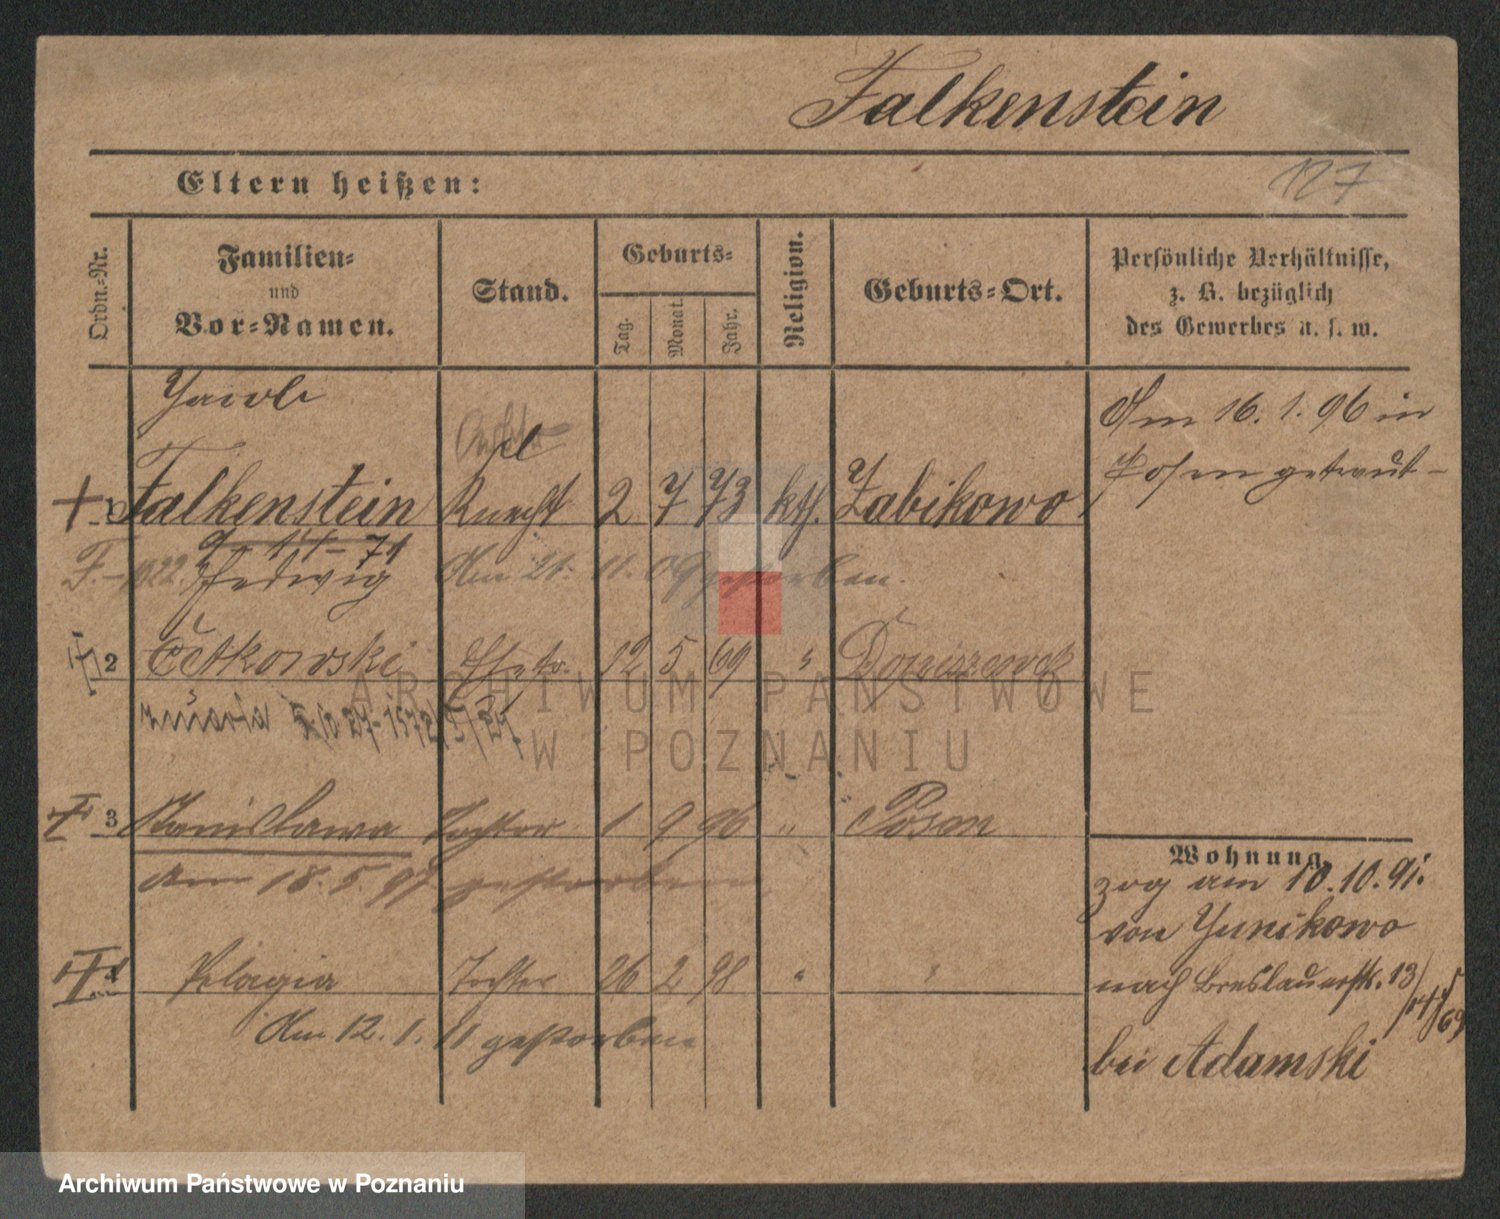 Falkenstein
127
Eltern heißen:
Ordn.-Nr.
Familien- und Vor-Namen.
Stand.
Geburts-
Tag. Monat. Jahr.
Religion.
Geburts-Ort.
Persönliche Verhältnisse,
z. B. bezüglich
des Gewerbes u. s. w.
Jacob
Am 16. 1. 96 in
Posen getraut
Falkenstein Knecht 2 7 73 kth. Żabikowo
Hedwig Am 21. 11. 09 gestorben.
2 Cetkowski 12 5 69 "
zmarła
3 Stanislawa Tochter 1 9 96 " Posen
Am 18. 5. 97 gestorben
Pelagia Tochter 26 2 98 " "
Am 12. 1. 11 gestorben
Wohnung.
zog am 10. 10. 91.
von Junikowo
nach Breslauerstr. 13/
bei Adamski
ARCHIWUM PAŃSTWOWE
W POZNANIU
Archiwum Państwowe w Poznaniu